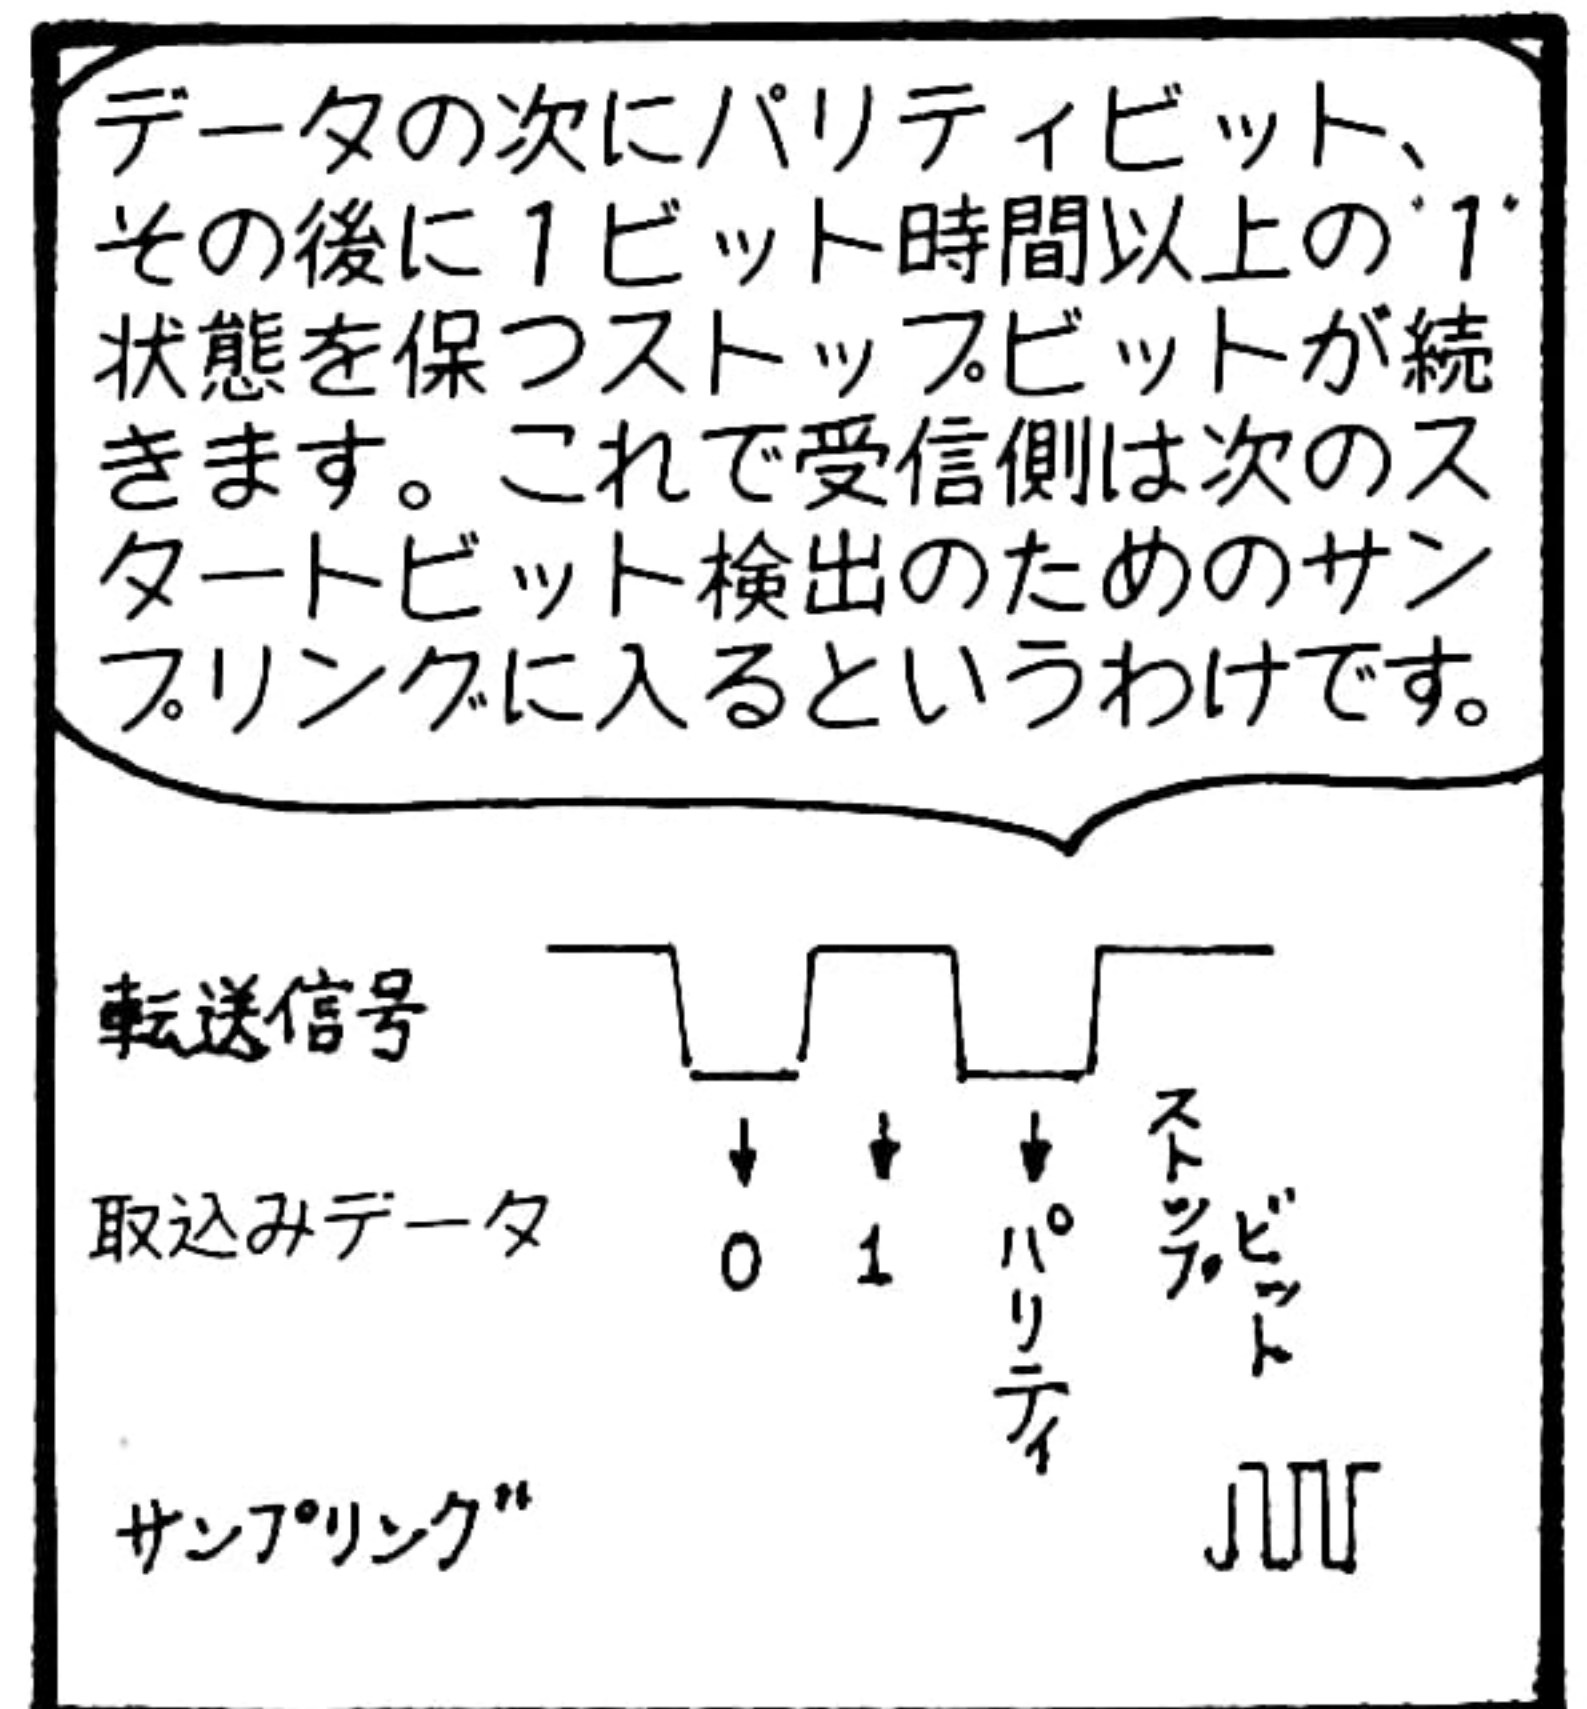 データの次にパリティビット、
その後に1ビット時間以上の"1"
状態を保つストップビットが続
きます。これで受信側は次のス
タートビット検出のためのサン
プリングに入るというわけです。
転送信号
取込みデータ
0 1 パリティ ストップ ビット
サンプリング